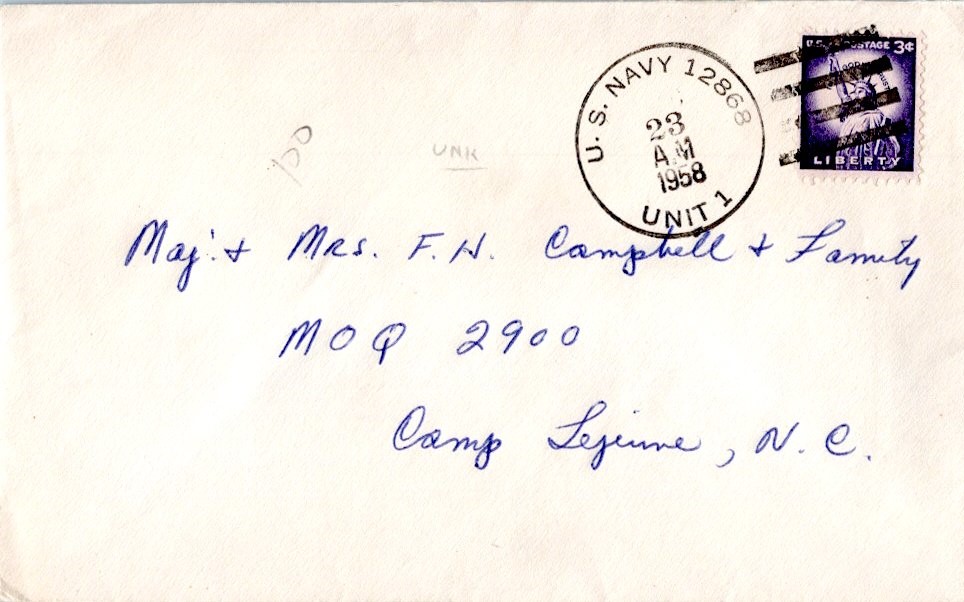 U. S. NAVY 12868
23
A.M
1958
UNIT 1
U.S. POSTAGE 3¢
LIBERTY
100
UNK
Maj. & Mrs. F. H. Campbell & Family
MOQ 2900
Camp Lejeune, N. C.